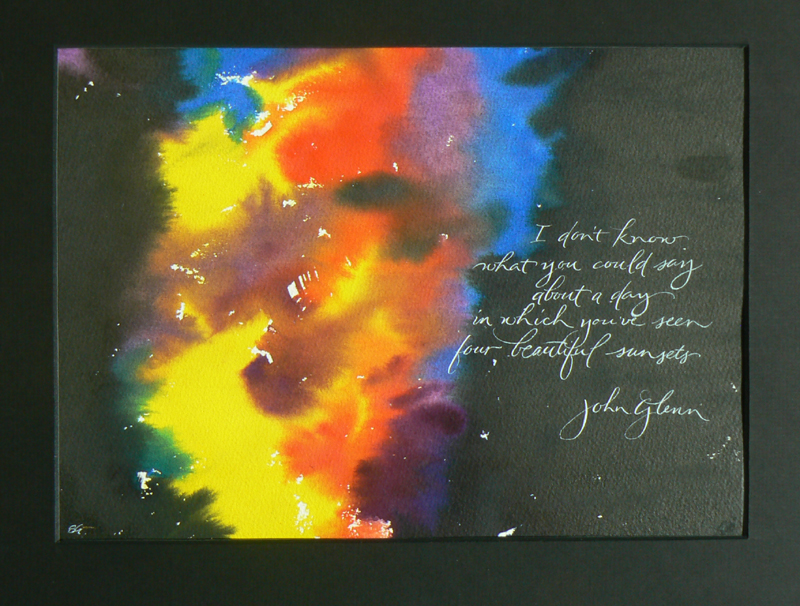 I don't know
what you could say
about a day
in which you've seen
four beautiful sunsets
John Glenn